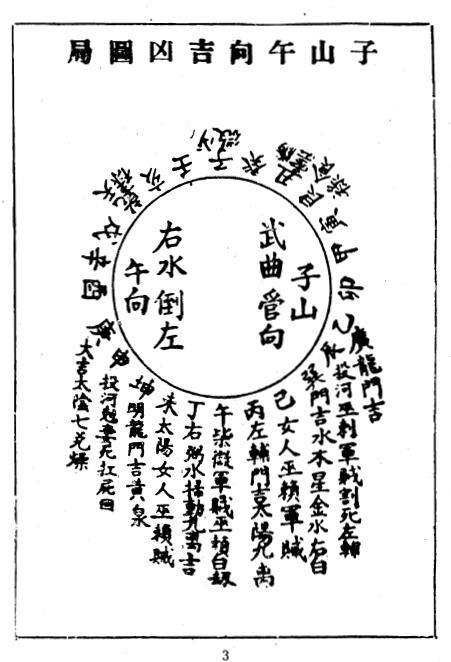 子山午向吉凶圖局
子山
武曲管向
右水倒左
午向
子
癸
丑
艮
寅
甲
卯
乙
廣龍門吉
投河巫刺軍賊割死左輔
巽門吉水木星金水右白
巳女人巫賴軍賊
丙左輔門吉太陽九离
午柒微軍賊巫賴白
丁右弼水動九离吉
未太陽女人巫賴賊
坤明龍門吉黃泉
投河尅妻死扛屍回
大吉太陰七兌燥
庚
酉
辛
戌
乾
亥
壬
3